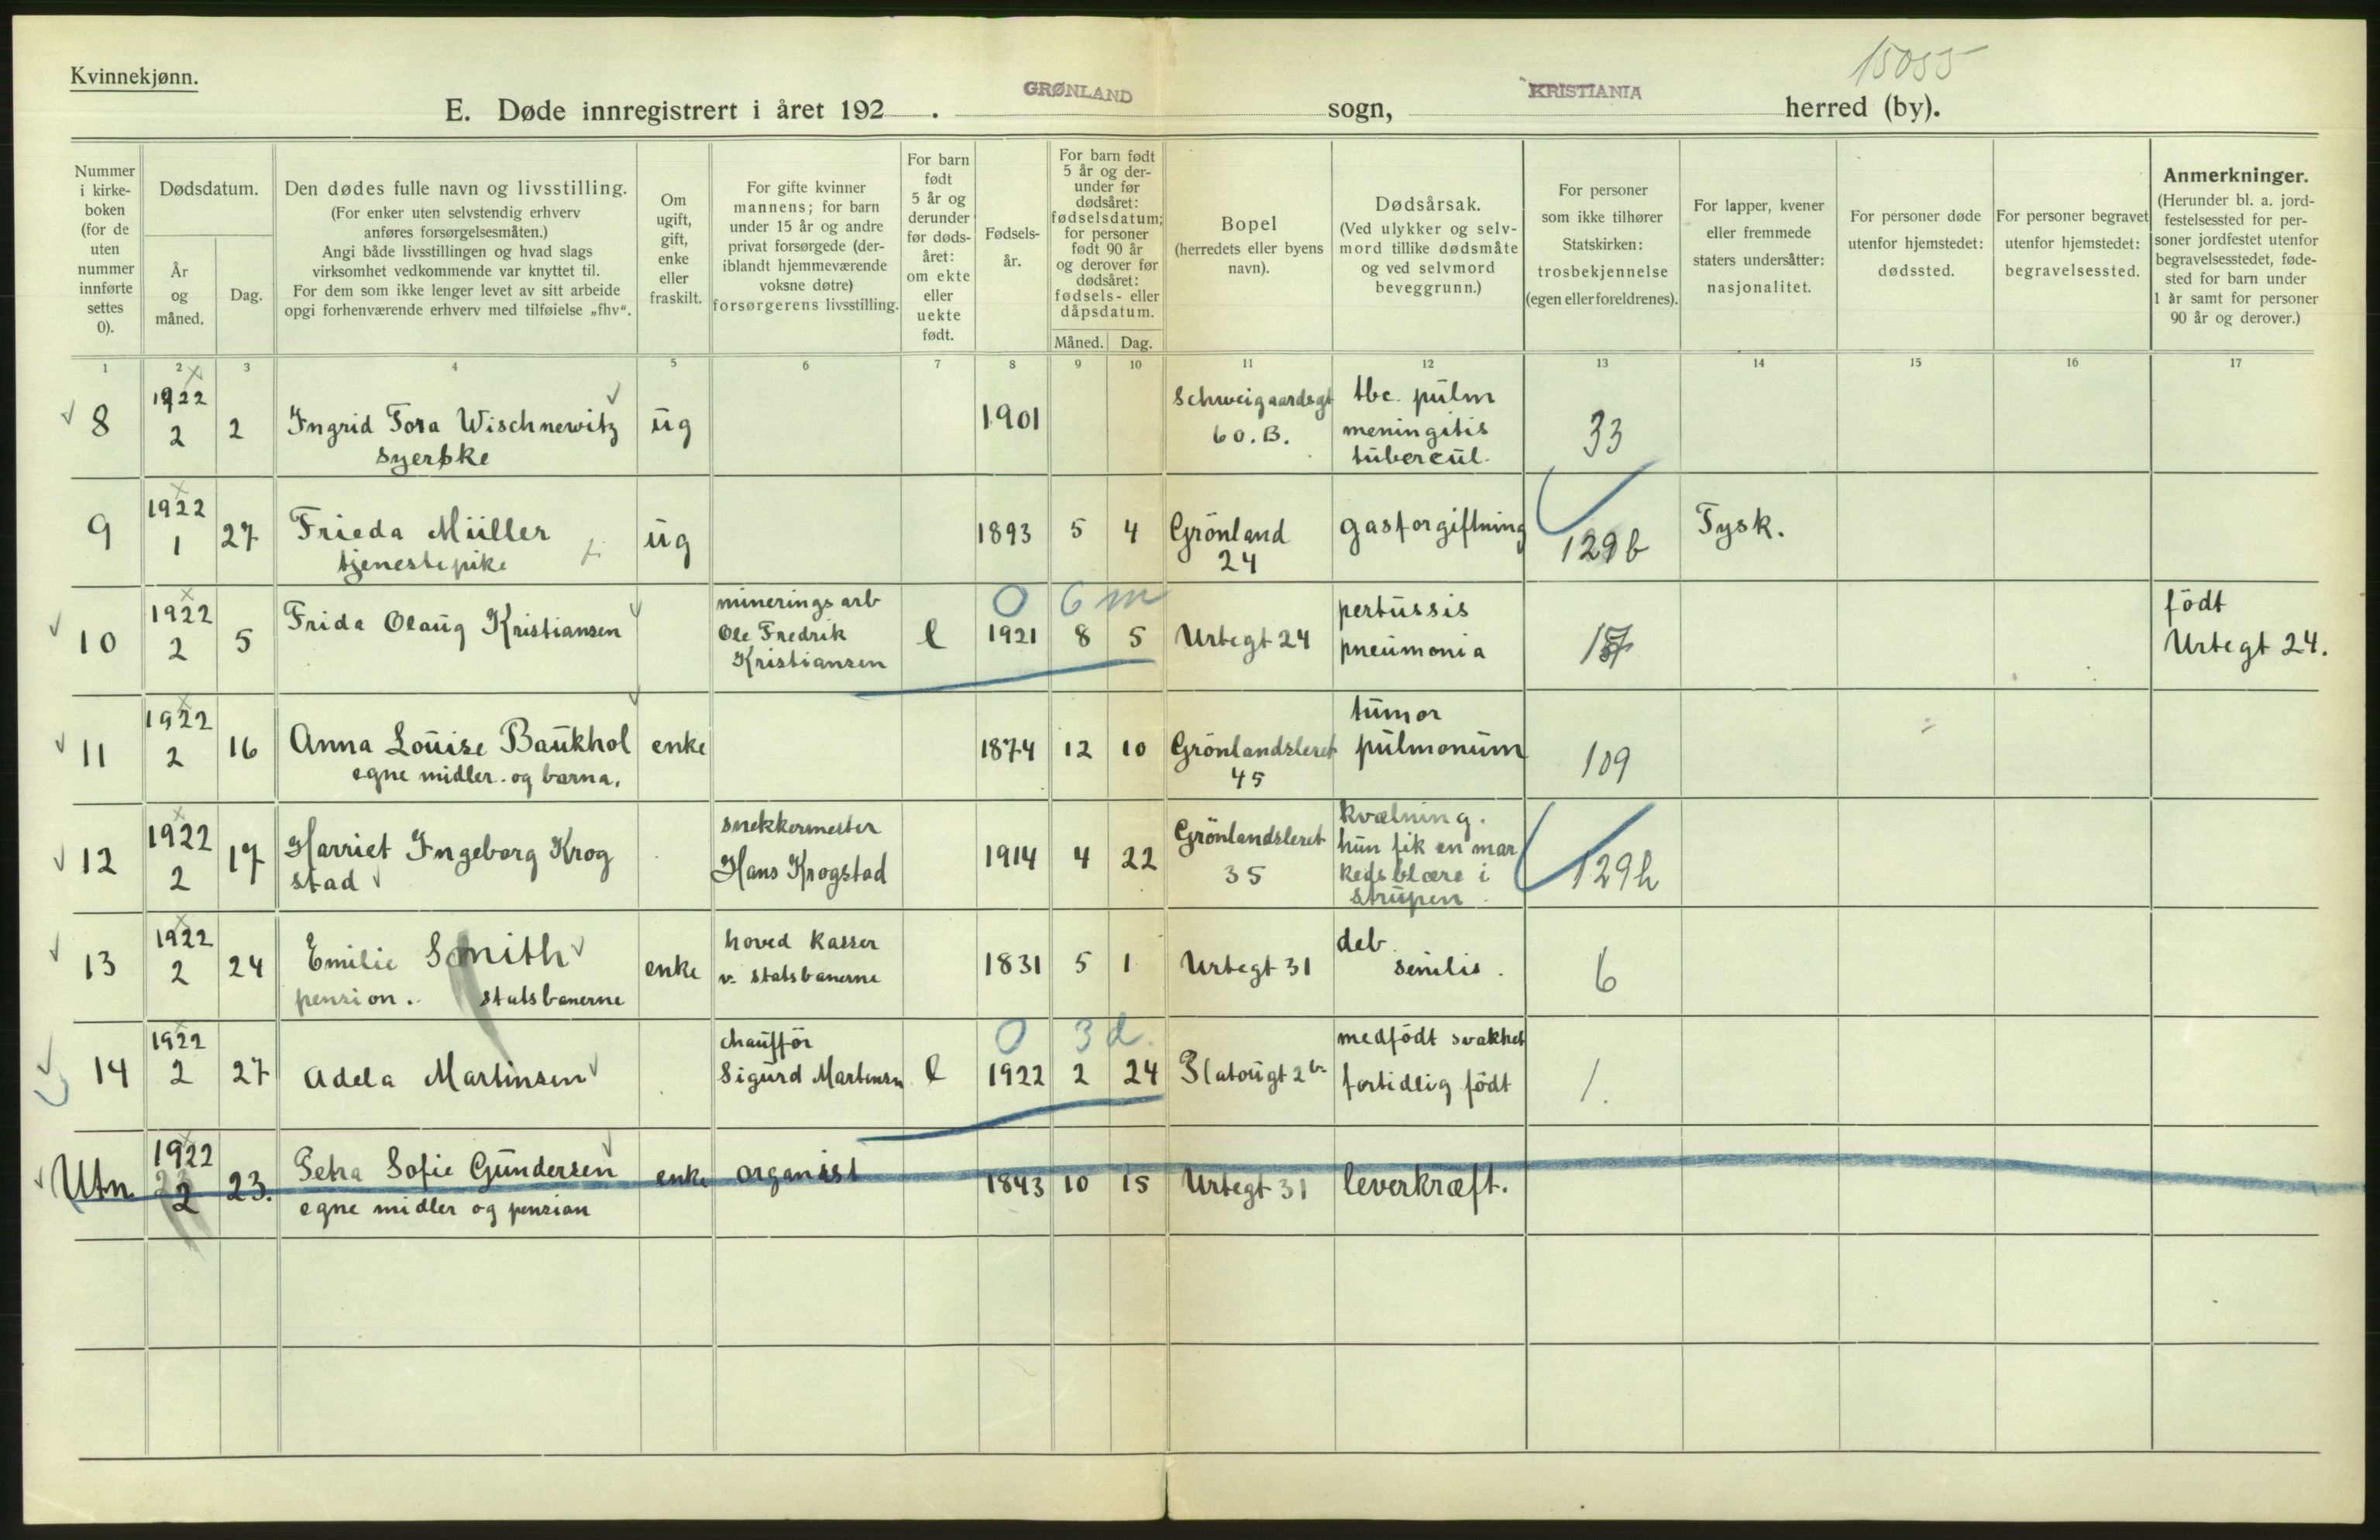 15055
Kvinnekjønn.
E. Døde innregistrert i året 192 . GRØNLAND sogn, KRISTIANIA herred (by).
Nummer i kirke- boken (for de uten nummer innførte settes 0).
Dødsdatum.
År og måned.
Dag.
Den dødes fulle navn og livsstilling.
(For enker uten selvstendig erhverv anføres forsørgelsesmåten.)
Angi både livsstillingen og hvad slags virksomhet vedkommende var knyttet til.
For dem som ikke lenger levet av sitt arbeide opgi forhenværende erhverv med tilføielse „fhv“.
Om ugift, gift, enke eller fraskilt.
For gifte kvinner mannens; for barn under 15 år og andre privat forsørgede (der- iblandt hjemmeværende voksne døtre) forsørgerens livsstilling.
For barn født 5 år og derunder før døds- året: om ekte eller uekte født.
Fødsels- år.
For barn født 5 år og der- under før dødsåret: fødselsdatum; for personer født 90 år og derover før dødsåret: fødsels- eller dåpsdatum.
Måned. Dag.
Bopel (herredets eller byens navn).
Dødsårsak.
(Ved ulykker og selv- mord tillike dødsmåte og ved selvmord beveggrunn.)
For personer som ikke tilhører Statskirken: trosbekjennelse (egen eller foreldrenes).
For lapper, kvener eller fremmede staters undersåtter: nasjonalitet.
For personer døde utenfor hjemstedet: dødssted.
For personer begravet utenfor hjemstedet: begravelsessted.
Anmerkninger.
(Herunder bl. a. jord- festelsessted for per- soner jordfestet utenfor begravelsesstedet, føde- sted for barn under 1 år samt for personer 90 år og derover.)
1 2 3 4 5 6 7 8 9 10 11 12 13 14 15 16 17
8 1922 2 2 Ingrid Tora Wischnewitz syerske ug 1901 Schweigaardsgt 60.B. tbc. pulm meningitis tubercul. 33
9 1922 1 27 Frieda Müller tjenestepike ug 1893 5 4 Grönland 24 gasforgiftning 129b Tysk.
10 1922 2 5 Frida Olaug Kristiansen mineringsarb Ole Fredrik Kristiansen e 0 6 m 1921 8 5 Urtegt 24 pertussis pneumonia født Urtegt 24.
11 1922 2 16 Anna Louise Baukhol egne midler og barna. enke 1874 12 10 Grönlandsleret 45 tumor pulmonum 109
12 1922 2 17 Harriet Ingeborg Krog stad snekkermester Hans Krogstad 1914 4 22 Grönlandsleret 35 kvælning. hun fik en mar kedsblære i strupen. 129h
13 1922 2 24 Emilie Smith pension. statsbanerne enke hoved kasser v. statsbanerne 1831 5 1 Urtegt 31 deb senilis. 6
14 1922 2 27 Adela Martinsen chauffør Sigurd Martinsen e 0 3 d. 1922 2 24 Platougt 2b. medfødt svakhet fortidlig født 1.
Utn 1922 2 23. Petra Sofie Gundersen egne midler og pension enke organist 1843 10 15 Urtegt 31 leverkræft.